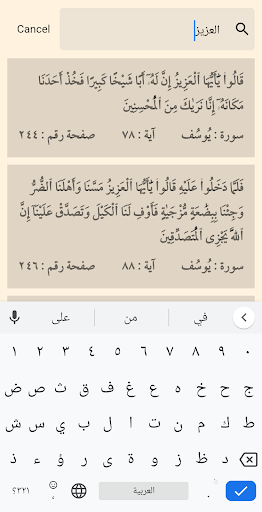 Cancel العزيز
قَالُوا۟ يَٰٓأَيُّهَا ٱلْعَزِيزُ إِنَّ لَهُۥٓ أَبًا شَيْخًا كَبِيرًا فَخُذْ أَحَدَنَا
مَكَانَهُۥٓ إِنَّا نَرَىٰكَ مِنَ ٱلْمُحْسِنِينَ
سورة : يُوسُف آية : ٧٨ صفحة رقم : ٢٤٤
فَلَمَّا دَخَلُوا۟ عَلَيْهِ قَالُوا۟ يَٰٓأَيُّهَا ٱلْعَزِيزُ مَسَّنَا وَأَهْلَنَا ٱلضُّرُّ
وَجِئْنَا بِبِضَٰعَةٍ مُّزْجَىٰةٍ فَأَوْفِ لَنَا ٱلْكَيْلَ وَتَصَدَّقْ عَلَيْنَآ إِنَّ
ٱللَّهَ يَجْزِى ٱلْمُتَصَدِّقِينَ
سورة : يُوسُف آية : ٨٨ صفحة رقم : ٢٤٦
في من على
١ ٢ ٣ ٤ ٥ ٦ ٧ ٨ ٩ ٠
ج ح خ ه ع غ ف ق ث ص ض
ط ك م ن ت ا ل ب ي س ش
د ظ ز و ة ى ر ؤ ء ذ
٣٢١؟ العربية .